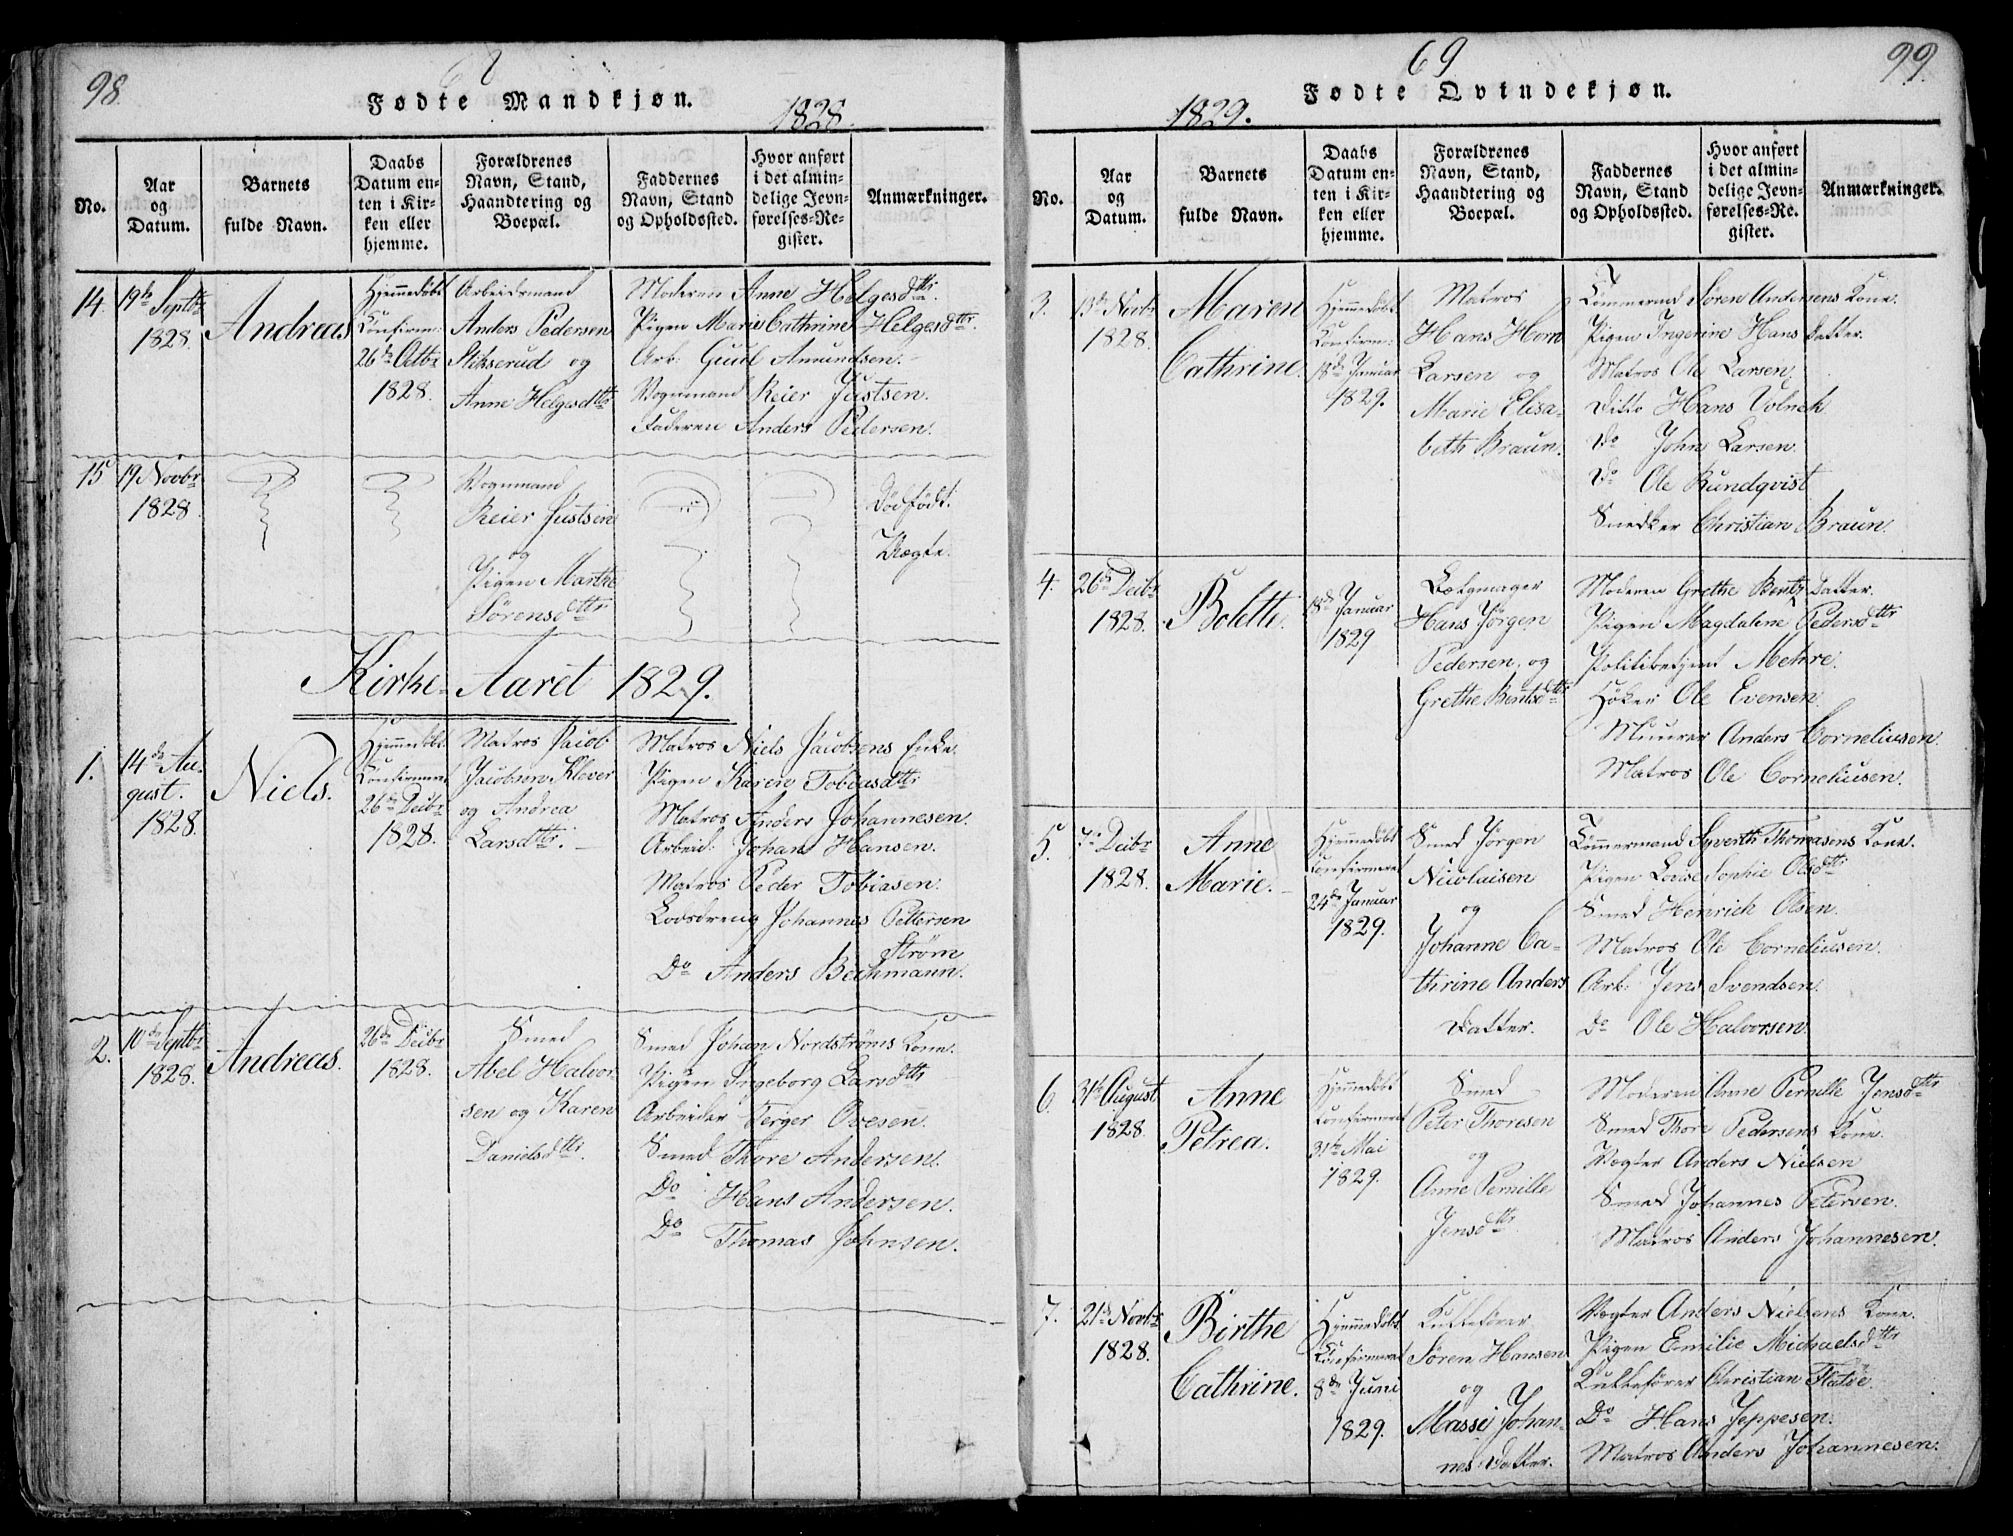 98
Fødte Mandkjøn.
1828
No.
Aar og Datum.
Barnets fulde Navn.
Daabs Datum enten i Kirken eller hjemme.
Forældrenes Navn, Stand, Haandtering og Boepæl.
Faddernes Navn, Stand og Opholdssted.
Hvor anført i det almindelige Jevnførelses-Register.
Anmærkninger.
14.
19de Septbr
1828.
Andreas
Hjemmedøbt
Confirm:
26de Octbr
1828.
Arbeidsmand
Anders Pedersen
Stikserud og
Anne Helgesdttr
Moderen Anne Helgesdttr.
Pigen Marie Cathrine Helgesdttr.
Arb: Gudl Amundsen.
Vognmand Reier Justsen.
Faderen Anders Pedersen.
15
19 Novbr
1828.
Vognmand
Reier Justsen
og
Pigen Marthe
Sørensdttr
Dødfødt.
Uægte.
Kirke-Aaret 1829.
1.
14de Au-
gust.
1828.
Niels.
Hjemmedøbt
Confirmeret
26de Decbr
1828.
Matros Jacob
Jacobsen Klever
og Andrea
Larsdttr.
Matros Niels Jacobsens Enke.
Pigen Karen Tobiasdttr
Matros Anders Johannesen.
Arbeid: Johan Hansen.
Matros Peder Tobiasen.
Lodsdreng Johannes Pettersen
Strøm
Do Anders Bechmann.
2.
10de Septbr
1828.
Andreas.
26de Decbr
1828.
Smed
Abel Halvor-
sen og Karen
Danielsdttr.
Smed Johan Nordstrøms Kone.
Pigen Ingeborg Larsdttr
Arbeider Terger Ovesen.
Smed Thore Andersen.
Do Hans Andersen.
Do Thomas Johnsen.
69
99.
Fødte Qvindekjøn.
1829.
No.
Aar og Datum.
Barnets fulde Navn.
Daabs Datum enten i Kirken eller hjemme.
Forældrenes Navn, Stand, Haandtering og Boepæl.
Faddernes Navn, Stand og Opholdssted.
Hvor anført i det almindelige Jevnførelses-Register.
Anmærkninger.
3.
13de Novbr
1828.
Maren
Cathrine.
Hjemmedøbt
Confirm:
18de Januar
1829.
Matros
Hans Horn
Larsen og
Marie Elisa-
beth Braun.
Tømmermd Søren Andersens Kone.
Pigen Ingerine Hans Datter.
Matros Ole Larsen.
Ditto Hans Volnek
Do John Larsen.
Do Ole Rundqvist
Snedker Christian Braun.
4.
26de Decbr
1828.
Bolette.
18de Januar
1829
Hans Jørgen
Pedersen, og
Grethe Bentsdttr
Moderen Grethe Bents Datter.
Pigen Magdalene Pedersdttr
Politibetjent Mehre.
Høker Ole Evensen.
Muurer Anders Corneliusen.
Matros Ole Corneliusen.
5.
7de Decbr
1828.
Anne
Marie.
Hjemmedøbt
Confirmeret
24de Januar
1829.
Smed Jørgen
Nicolaisen
og
Johanne Ca-
thrine Anders
Datter.
Tømmermand Syverth Thomasens Kone.
Pigen Lovise Sophie Olsdttr
Smed Henrich Olsen.
Matros Ole Corneliusen.
Arb: Jens Svendsen.
Do Ole Halvorsen.
6.
31te August
1828.
Anne
Petrea.
Hjemmedøbt
Confirmeret
31te Mai
1829.
Smed
Peter Thoresen
og
Anne Pernille
Jensdttr.
Moderen Anne Pernille Jensdttr
Smed Thore Pedersens Kone.
Vægter Anders Nielsen
Smed Johannes Petersen.
Matros Anders Johannesen.
7.
21de Novbr
1828.
Birthe
Cathrine.
Hjemmedøbt
Confirmeret
8de Juni
1829.
Søren Hansen
og
Massi Johan-
nes Datter.
Vægter Anders Nielsens Kone.
Pigen Emilie Michaelsdttr
Christian Flatøe.
Do Hans Jeppesen.
Matros Anders Johannesen.